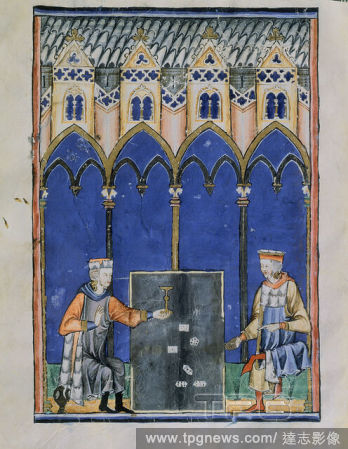 www.tpgnews.com/ 達志影像